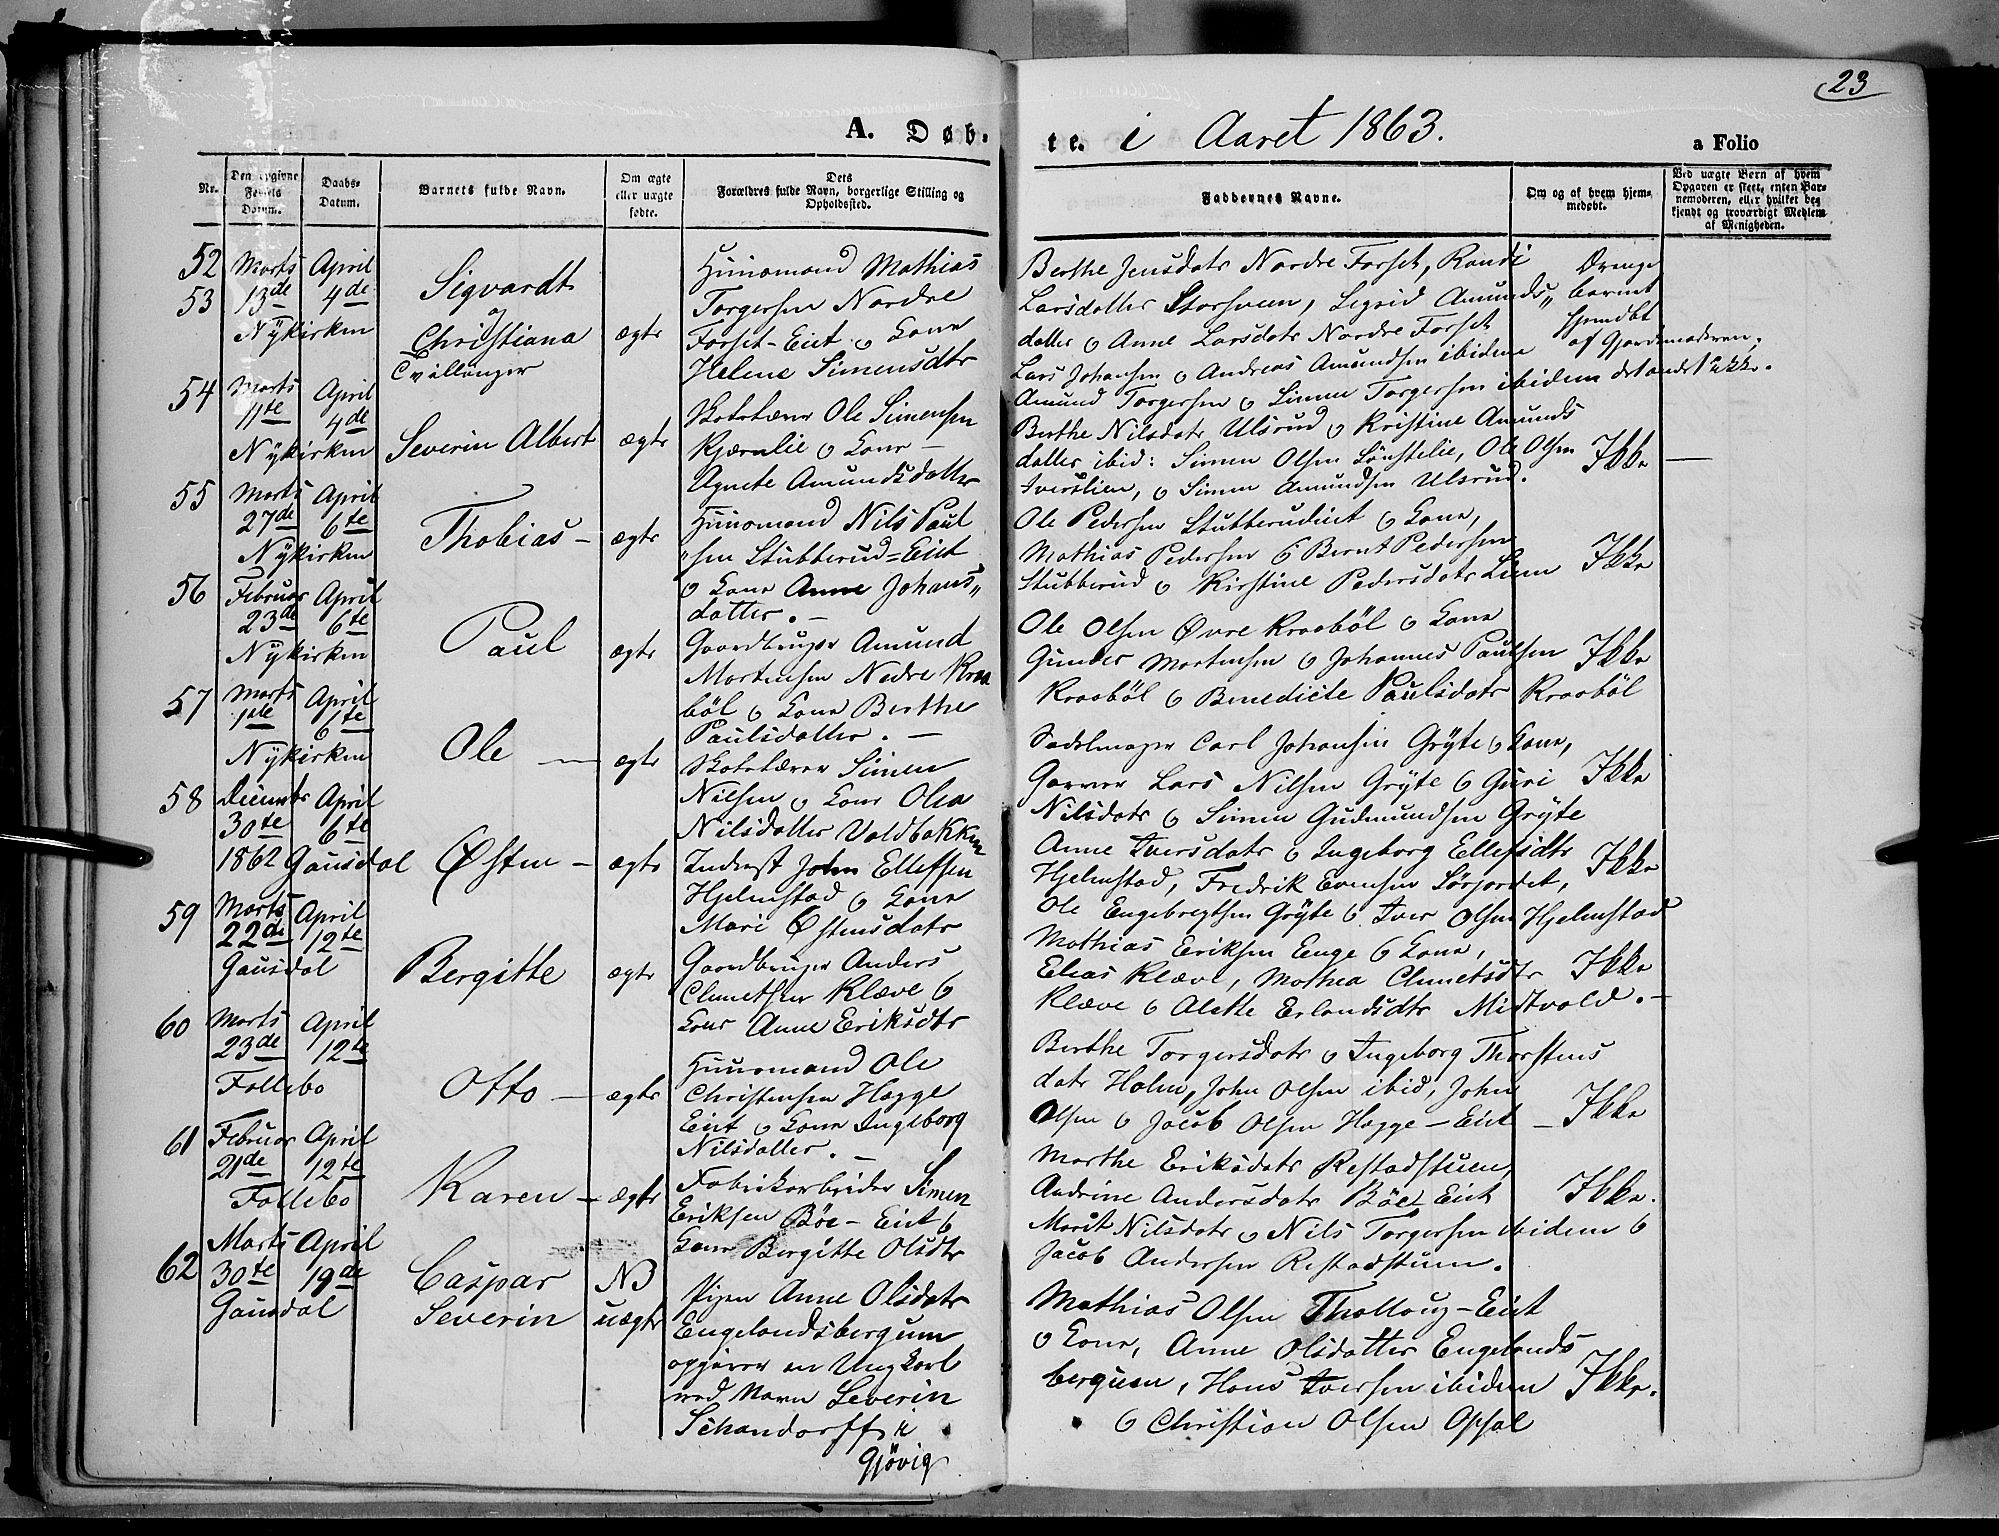 23
A. Døb-
te. i Aaret 1863.
a Folio
Nr.
Den opgivne Fødsels Datum.
Daabs-Datum.
Barnets fulde Navn.
Om ægte eller uægte fødte.
Dets Forældres fulde Navn, borgerlige Stilling og Opholdssted.
Faddernes Navne.
Om og af hvem hjemmedøbt.
Ved uægte Børn af hvem Opgaven er skeet, enten Barnemoderen, eller hvilket bekjendt og troværdigt Medlem af Menigheden.
52
53
Marts April
13de 4de
Nykirken
Sigvardt
og
Christiana
Tvillinger
ægte
Huusmand Mathias
Torgersen Nordre
Forset-Eiet o Kone
Helene Simensdtr
Berthe Jensdatr Nordre Forset, Randi
Larsdatter Storsveen, Sigrid Amunds„
datter o Anne Larsdatr Nordre Forset
Lars Johansen o Andreas Amundsen ibidem
Amund Torgersen o Simen Torgersen ibidem
Drenge
barnet
hjemdbt
af Gjordemoderen.
det andet ikke.
54
Marts April
11te 4de
Nykirken
Severin Albert
ægte
Skolelærer Ole Simensen
Kjærnlie o Kone
Agnete Amundsdatter
Berthe Nilsdatr Ulsrud o Kristine Amunds
datter ibid: Simen Olsen Lønstelie, Ole Olsen
Iverslien, o Simen Amundsen Ulsrud.
Ikke —
55
Marts April
27de 6te
Nykirken
Thobias —
ægte
Huusmand Nils Paul
„sen Stubberud=Eiet
o Kone Anne Johans„
datter. —
Ole Pedersen Stubberudeiet o Kone,
Mathias Pedersen o Bernt Pedersen
Stubberud o Kirstine Pedersdatr Lien
Ikke
56
Februar April
23de 6te
Nykirken
Paul
ægte
Gaardbruger Amund
Mortensen Nedre Kraa
bøl o Kone Berthe
Paulsdatter. —
Ole Olsen Øvre Kraabøl o Kone
Gunder Mortensen o Johannes Paulsen
Kraabøl o Benedicte Paulsdatr Kraabøl
Ikke
57
Marts April
1ste 6te
Nykirken
Ole —
ægte
Skolelærer Simen
Nilsen o Kone Olea
Nilsdatter Voldbakken
Sadelmager Carl Johansen Gryte o Kone,
Garver Lars Nilsen Gryte o Guri
Nilsdatr o Simen Gudmundsen Gryte
Ikke
58
Decembr April
30te 6te
1862 Gausdal
Østen —
ægte
Inderst John Ellefsen
Hjelmstad o Kone
Mari Østensdatr
Anne Iversdatr o Ingeborg Ellefsdtr
Hjelmstad, Fredrik Evensen Sørjordet,
Ole Engebregtsen Gryte o Iver Olsen Hjelmstad
Ikke
59
Marts April
22de 12te
Gausdal
Bergitte
ægte
Gaardbruger Anders
Clemetsen Klæve o
Kone Anne Eriksdtr
Mathias Eriksen Enge o Kone,
Elias Klæve, Mathea Clemetsdtr
Klæve o Alette Erlandsdtr Midtvold. —
Ikke
60
Marts April
23de 12te
Follebo
Otto —
ægte
Huusmand Ole
Christensen Hagge
Eiet o Kone Ingeborg
Nilsdatter. —
Berthe Torgersdatr o Ingeborg Thorstens
datr Holm, John Olsen ibid, John
Olsen o Jacob Olsen Hagge—Eiet —
Ikke
61
Februar April
21de 12te
Follebo
Karen —
ægte
Fabrikarbeider Simen
Eriksen Bøe—Eiet o
Kone Bergitte Olsdtr
Marthe Eriksdatr Restadstuen,
Andrine Andersdatr Bøe Eiet
Marit Nilsdatr o Nils Torgersen ibidem o
Jacob Andersen Restadstuen.
Ikke.
62
Marts April
30te 19de
Gausdal
Caspar
Severin
N3
uægte
Pigen Anne Olsdatr
Engelandsbergum
opgiver en Ungkarl
ved Navn Severin
Schandorff i
Gjøvig
Mathias Olsen Thollaug—Eiet
o Kone, Anne Olsdatter Engelands
berguen, Hans Iversen ibidem
o Christian Olsen Opsal
Ikke.